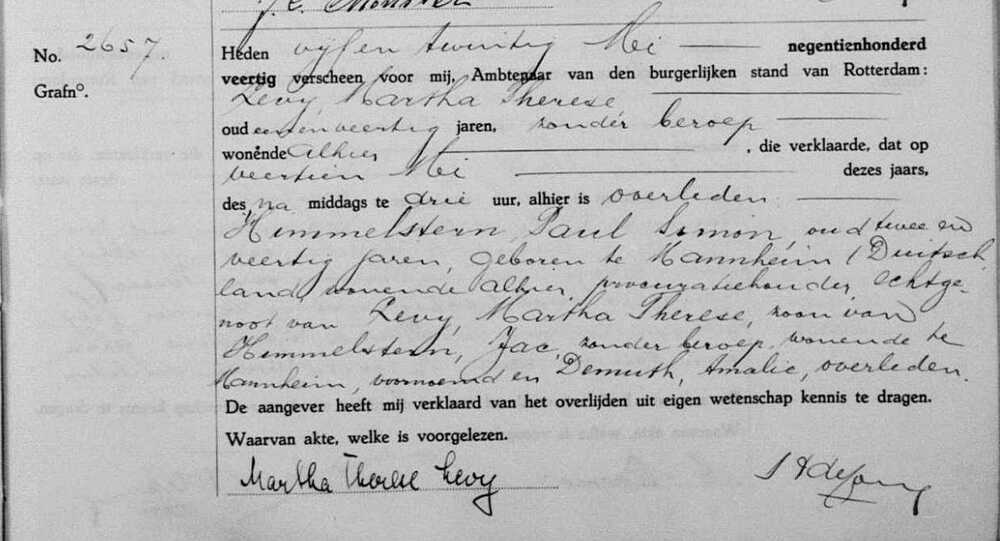 No. 2657.
Grafn°.
Heden vijf en twintig Mei negentienhonderd
veertig verscheen voor mij, Ambtenaar van den burgerlijken stand van Rotterdam:
Levy, Martha Therese,
oud eenenveertig jaren, zonder beroep
wonende alhier, die verklaarde, dat op
veertien Mei dezes jaars,
des na middags te drie uur, alhier is overleden
Himmelstern, Paul Simon, oud twee en
veertig jaren, geboren te Mannheim (Duitsch
land, wonende alhier, procuratiehouder, echtge-
noot van Levy, Martha Therese, zoon van
Himmelstern, Jac, zonder beroep, wonende te
Mannheim, voornoemd en Demuth, Amalie, overleden.
De aangever heeft mij verklaard van het overlijden uit eigen wetenschap kennis te dragen.
Waarvan akte, welke is voorgelezen.
Martha Therese Levy